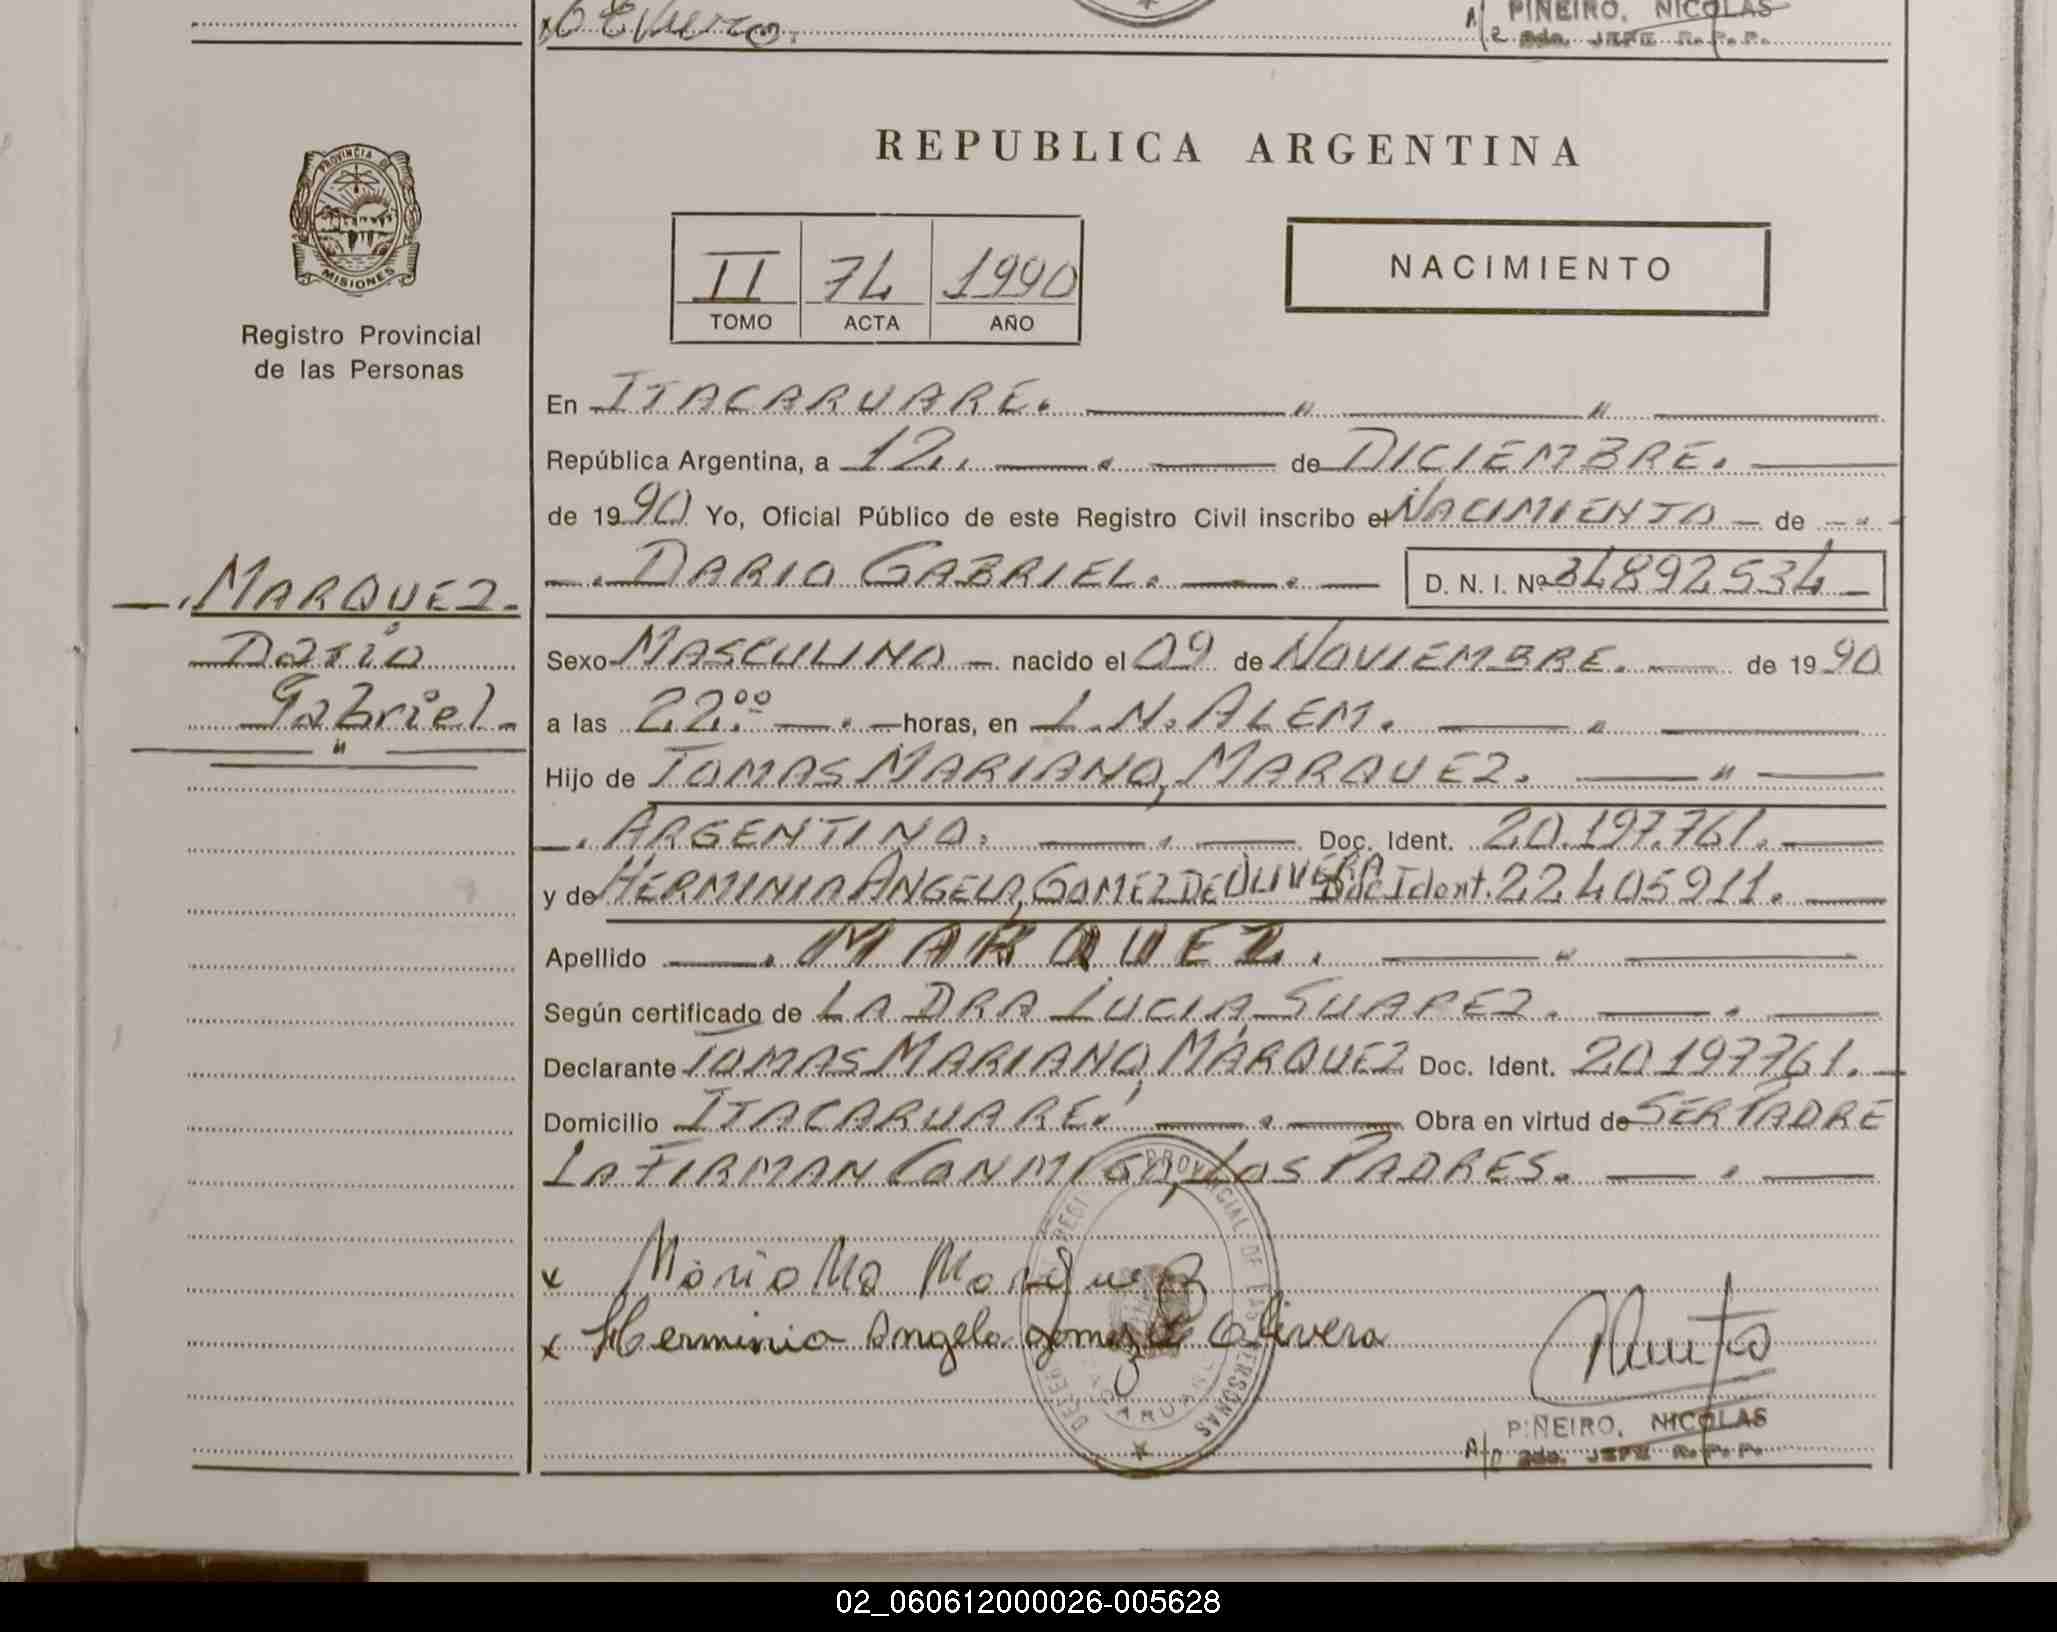 PIÑEIRO, NICOLAS
2da. JEFE R.P.P.
REPUBLICA ARGENTINA
PROVINCIA DE
MISIONES
Registro Provincial
de las Personas
II 74 1990
TOMO ACTA AÑO
NACIMIENTO
En ITACARUARE.
República Argentina, a 12. de DICIEMBRE.
de 1990 Yo, Oficial Público de este Registro Civil inscribo el NACIMIENTO de
DARIO GABRIEL. D. N. I. Nº 34892534
MARQUEZ.
Dario
Gabriel
Sexo MASCULINO nacido el 09 de NOVIEMBRE. de 1990
a las 22.00 horas, en L.N. ALEM.
Hijo de TOMAS MARIANO, MARQUEZ.
ARGENTINO. Doc. Ident. 20.197.761.
y de HERMINIA ANGELA, GOMEZ DE OLIVERA Doc Ident. 22405911.
Apellido MARQUEZ.
Según certificado de LA DRA LUCIA, SUAREZ.
Declarante TOMAS MARIANO, MARQUEZ Doc. Ident. 20197761.
Domicilio ITACARUARE. Obra en virtud de SER PADRE
LA FIRMAN CONMIGO, LOS PADRES.
x Marquez
x Herminia Angela gomez de Olivera
PROVINCIAL DE LAS PERSONAS
PIÑEIRO, NICOLAS
2da. JEFE R.P.P.
02_060612000026-005628